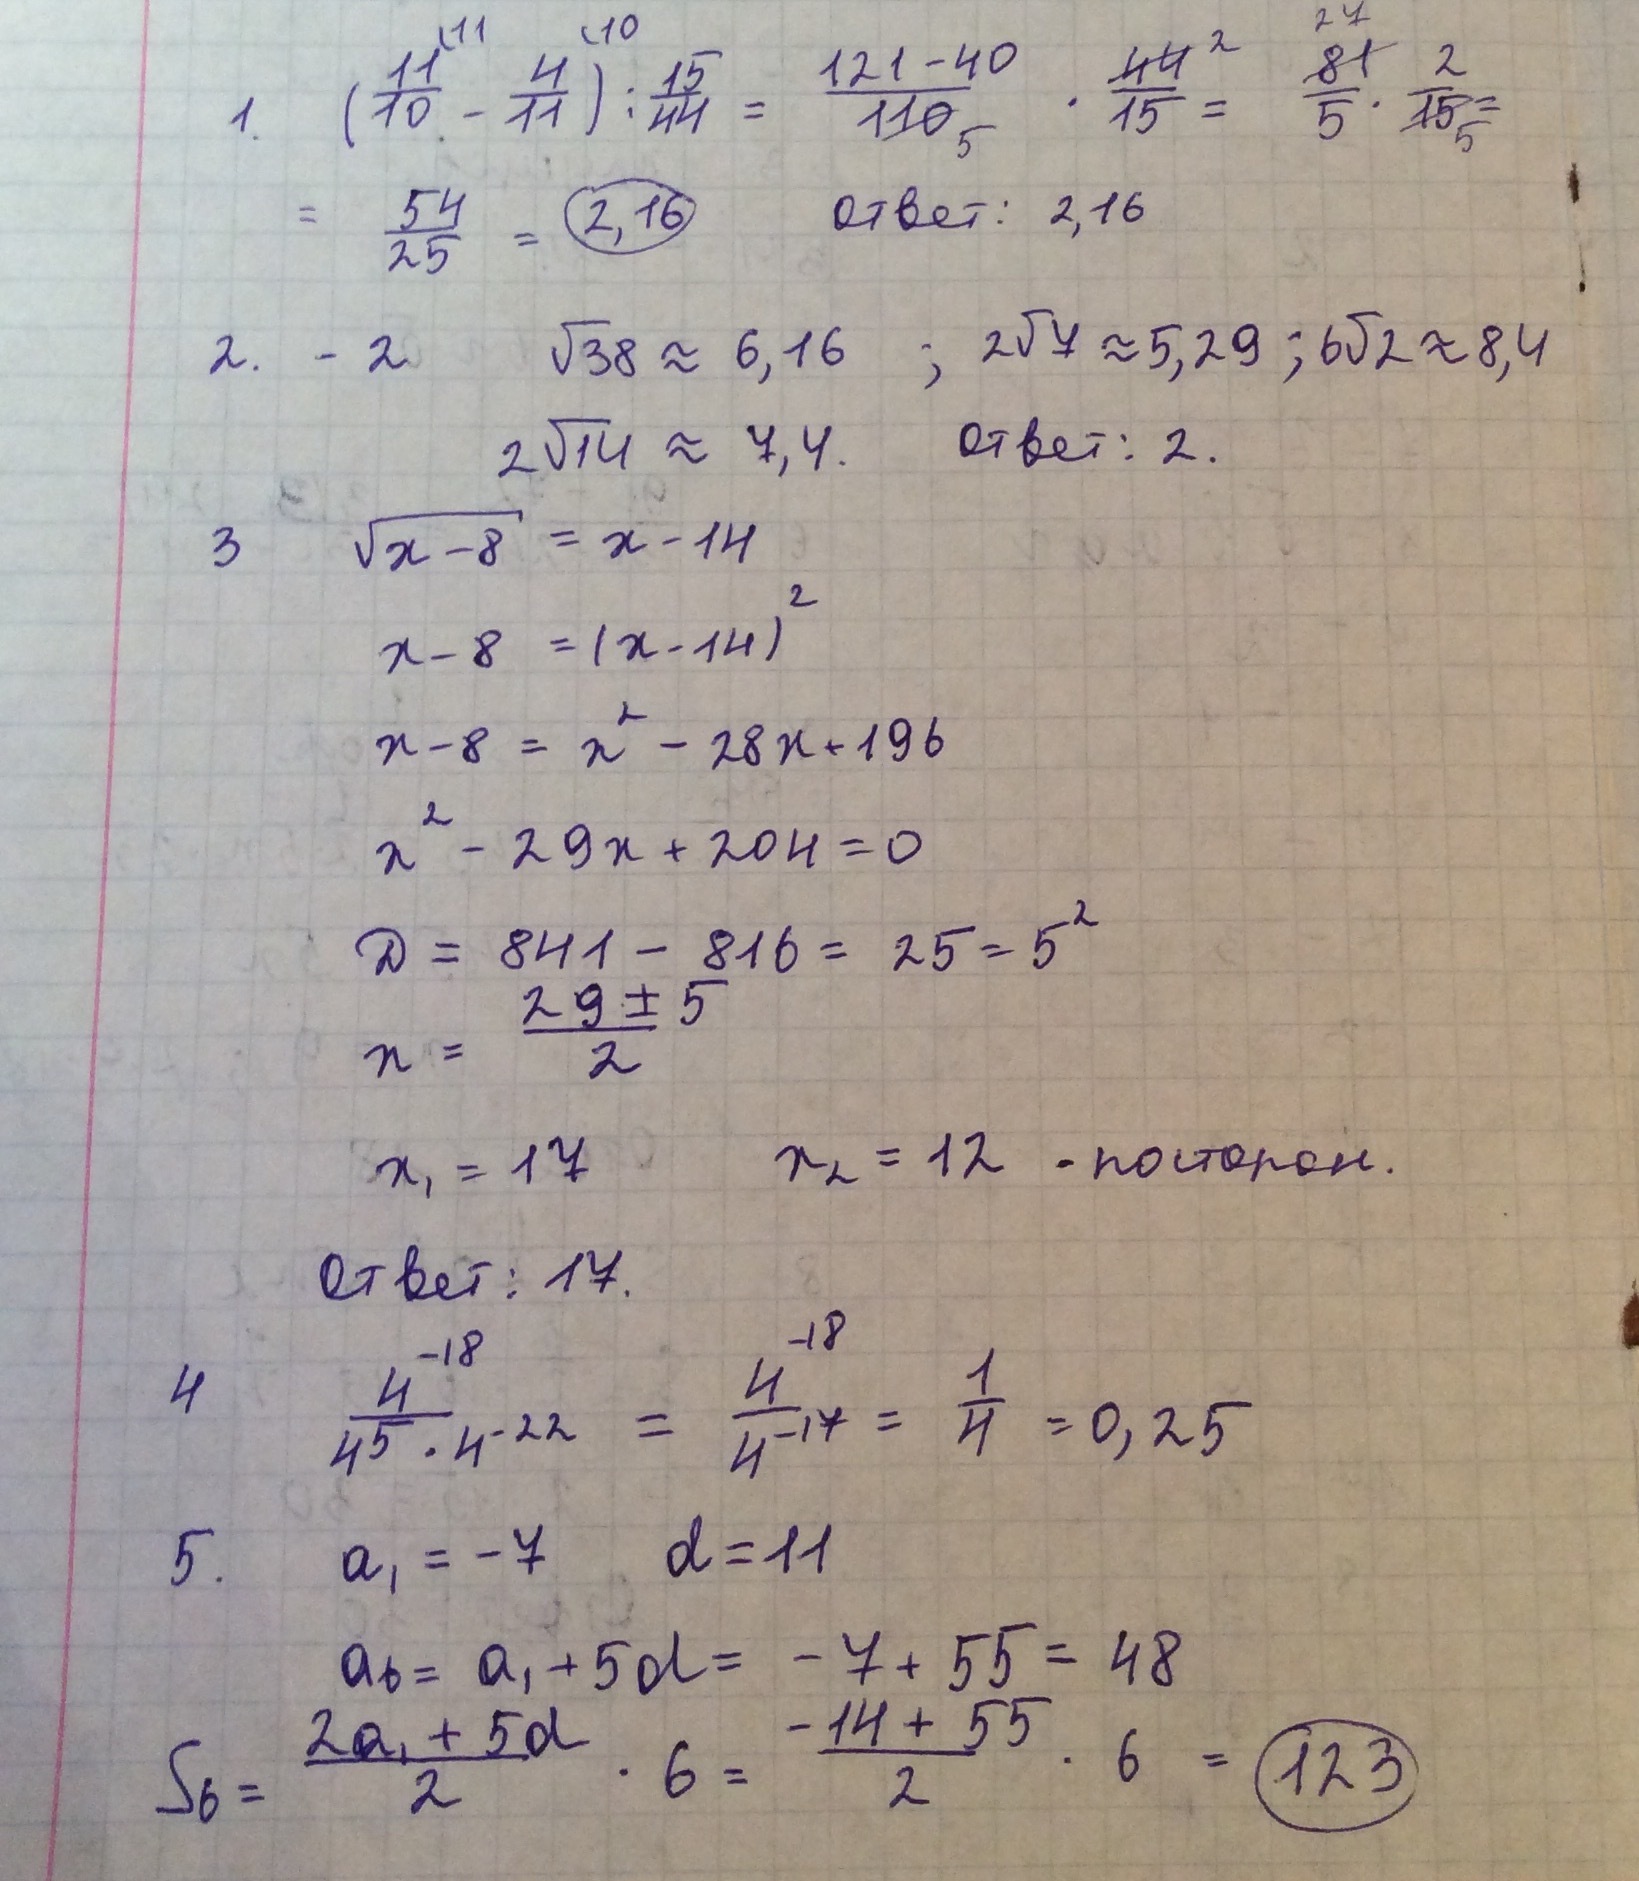 1. (11/10 - 4/11) : 15/44 = (121-40)/110 · 44/15 = 81/5 · 2/15 =
= 54/25 = 2,16 Ответ: 2,16
2. - 2 √38 ≈ 6,16 ; 2√7 ≈ 5,29 ; 6√2 ≈ 8,4
2√14 ≈ 7,4. Ответ: 2.
3 √(x-8) = x-14
x-8 = (x-14)²
x-8 = x² - 28x + 196
x² - 29x + 204 = 0
D = 841 - 816 = 25 = 5²
x = (29 ± 5)/2
x₁ = 17 x₂ = 12 - посторон.
Ответ: 17.
4 4⁻¹⁸/(4⁵ · 4⁻²²) = 4⁻¹⁸/4⁻¹⁷ = 1/4 = 0,25
5. a₁ = -7 d = 11
a₆ = a₁ + 5d = -7 + 55 = 48
S₆ = (2a₁ + 5d)/2 · 6 = (-14 + 55)/2 · 6 = 123